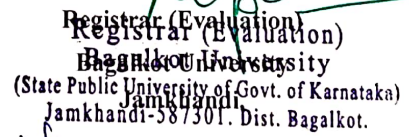 Registrar (Evaluation)
Registrar (Evaluation)
Bagalkot University
Bagalkot University
(State Public University of Govt. of Karnataka)
Jamkhandi.
Jamkhandi-587301. Dist. Bagalkot.